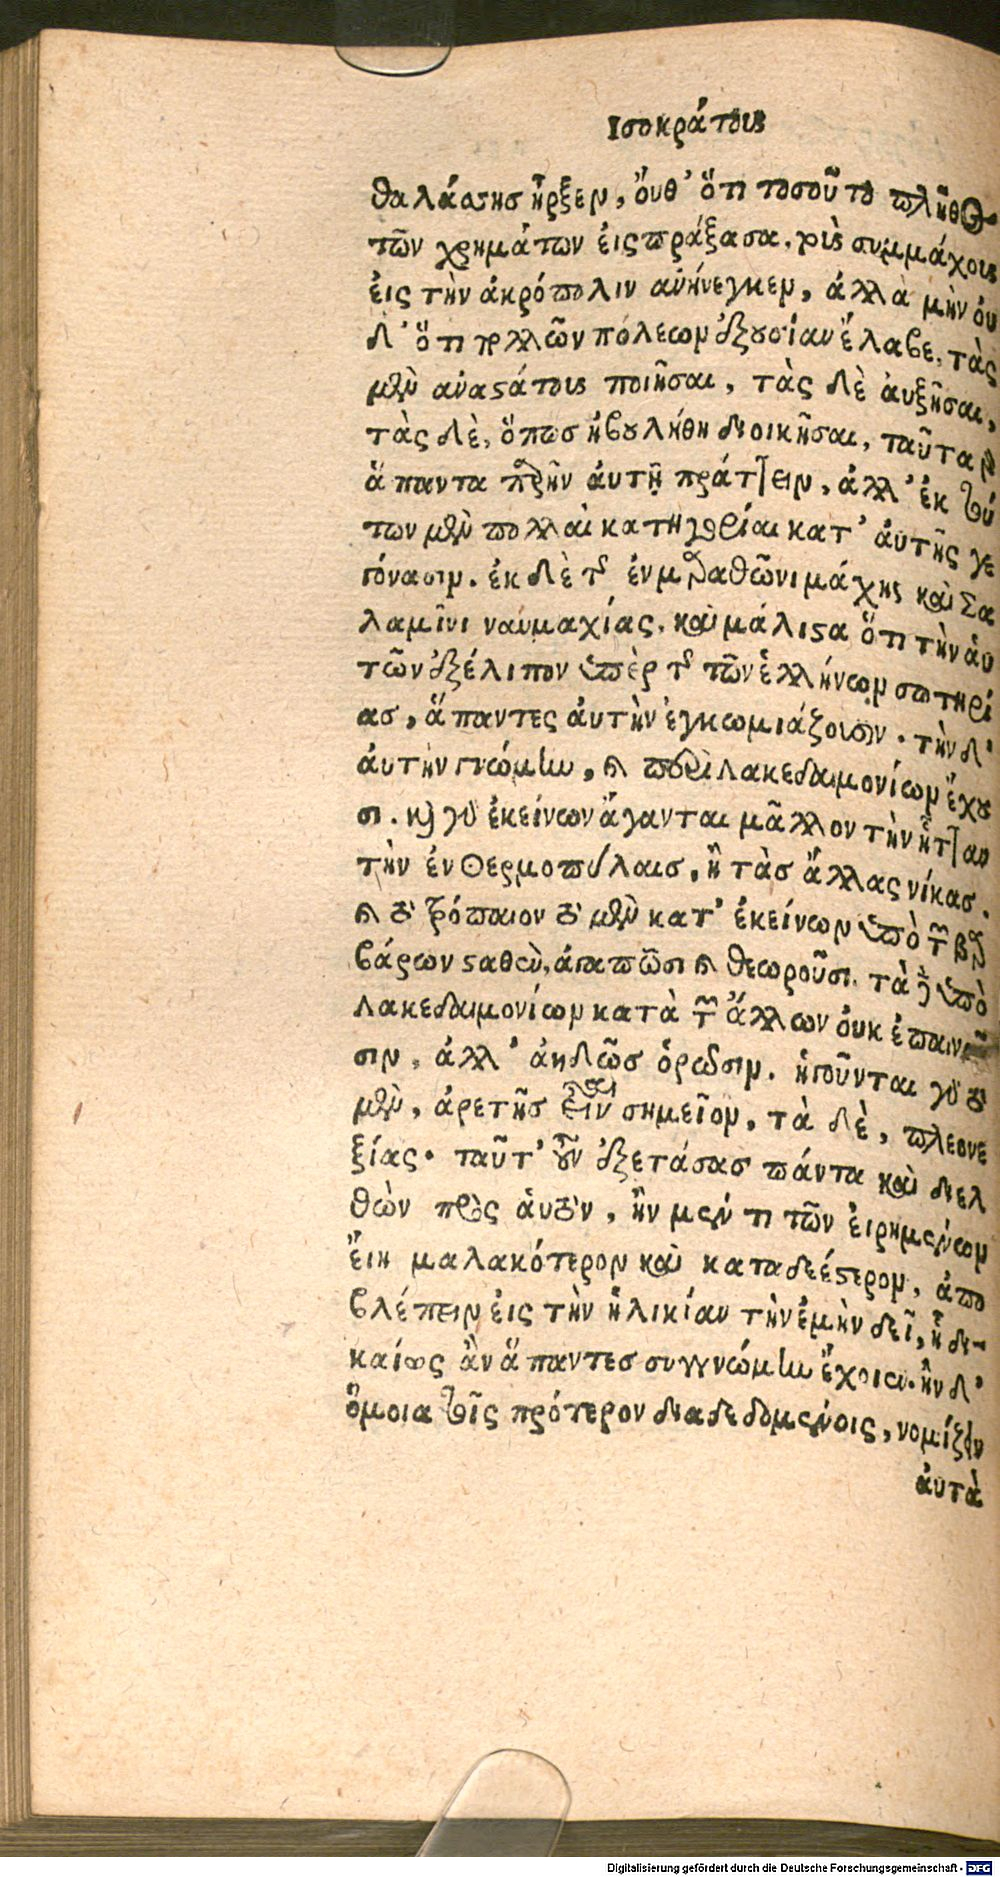 Ισοκράτους
θαλάσσης ἦρξεν, ὄυθ' ὅτι τοσοῦτο πλῆθος
τῶν χρημάτων ἐισπράξασα, τοὺς συμμάχους
ἐις τὴν ἀκρόπολιν ἀνήνεγκεν, ἀλλὰ μὴν ὀυ
δ' ὅτι πολλῶν πόλεων ἐξουσίαν ἔλαβε, τὰς
μὲν ἀναστάτους ποιῆσαι, τὰς δὲ ἀυξῆσαι,
τὰς δὲ, ὅπως ἠβουλήθη διοικῆσαι, ταῦτα γὰρ
ἅπαντα παρῆν ἀυτῇ πράττειν, ἀλλ' ἐκ τού
των μὲν πολλαὶ κατηγορίαι κατ' ἀυτῆς γε
γόνασιν. ἐκ δὲ τῆς ἐν μαραθῶνι μάχης καὶ Σα
λαμῖνι ναυμαχίας, καὶ μάλιστα ὅτι τὴν ἁυ
τῶν ἐξέλιπον ὑπὲρ τῆς τῶν ἑλλήνων σωτηρί
ας, ἅπαντες ἀυτὴν ἐγκωμιάζουσιν. τὴν δ'
ἀυτὴν γνώμην, καὶ περὶ λακεδαιμονίων ἔχου
σι. καὶ γὰρ ἐκείνων ἄγανται μᾶλλον τὴν ἧτταν
τὴν ἐν Θερμοπύλαις, ἢ τὰς ἄλλας νίκας.
καὶ τὸ τρόπαιον τὸ μὲν κατ' ἐκείνων ὑπὸ τῶν βαρ
βάρων σταθὲν, ἀγαπῶσι καὶ θεωροῦσι, τὰ δὲ ὑπὸ
λακεδαιμονίων κατὰ τῶν ἄλλων ὀυκ ἐπαινοῦ
σιν, ἀλλ' ἀηδῶς ὁρῶσιν. ἡγοῦνται γὰρ τὸ
μὲν, ἀρετῆς εἶναι σημεῖον, τὰ δὲ, πλεονε
ξίας. ταῦτ' οὖν ἐξετάσας πάντα καὶ διελ
θὼν πρὸς ἁυτὸν, ἢν μέν τι τῶν ἐιρημένων
ἔιη μαλακότερον καὶ καταδεέστερον, ἀπο
βλέπειν ἐις τὴν ἡλικίαν τὴν ἐμὴν δεῖ, ᾗ δι-
καίως ἂν ἅπαντες συγγνώμην ἔχοιεν. ἢν δ'
ὅμοια τοῖς πρότερον διαδεδομένοις, νομίζειν
ἀυτὰ
Digitalisierung gefördert durch die Deutsche Forschungsgemeinschaft - DFG